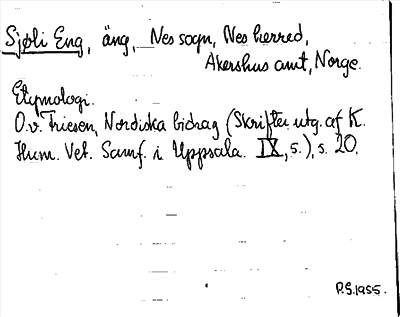 Sjøli Eng, äng, Nes sogn, Nes herred,
Akershus amt, Norge.
Etymologi.
O.v. Friesen, Nordiska bidrag (Skrifter utg. af K.
Hum. Vet. Samf. i Uppsala. IX, 5.), s. 20.
P.S.1955.